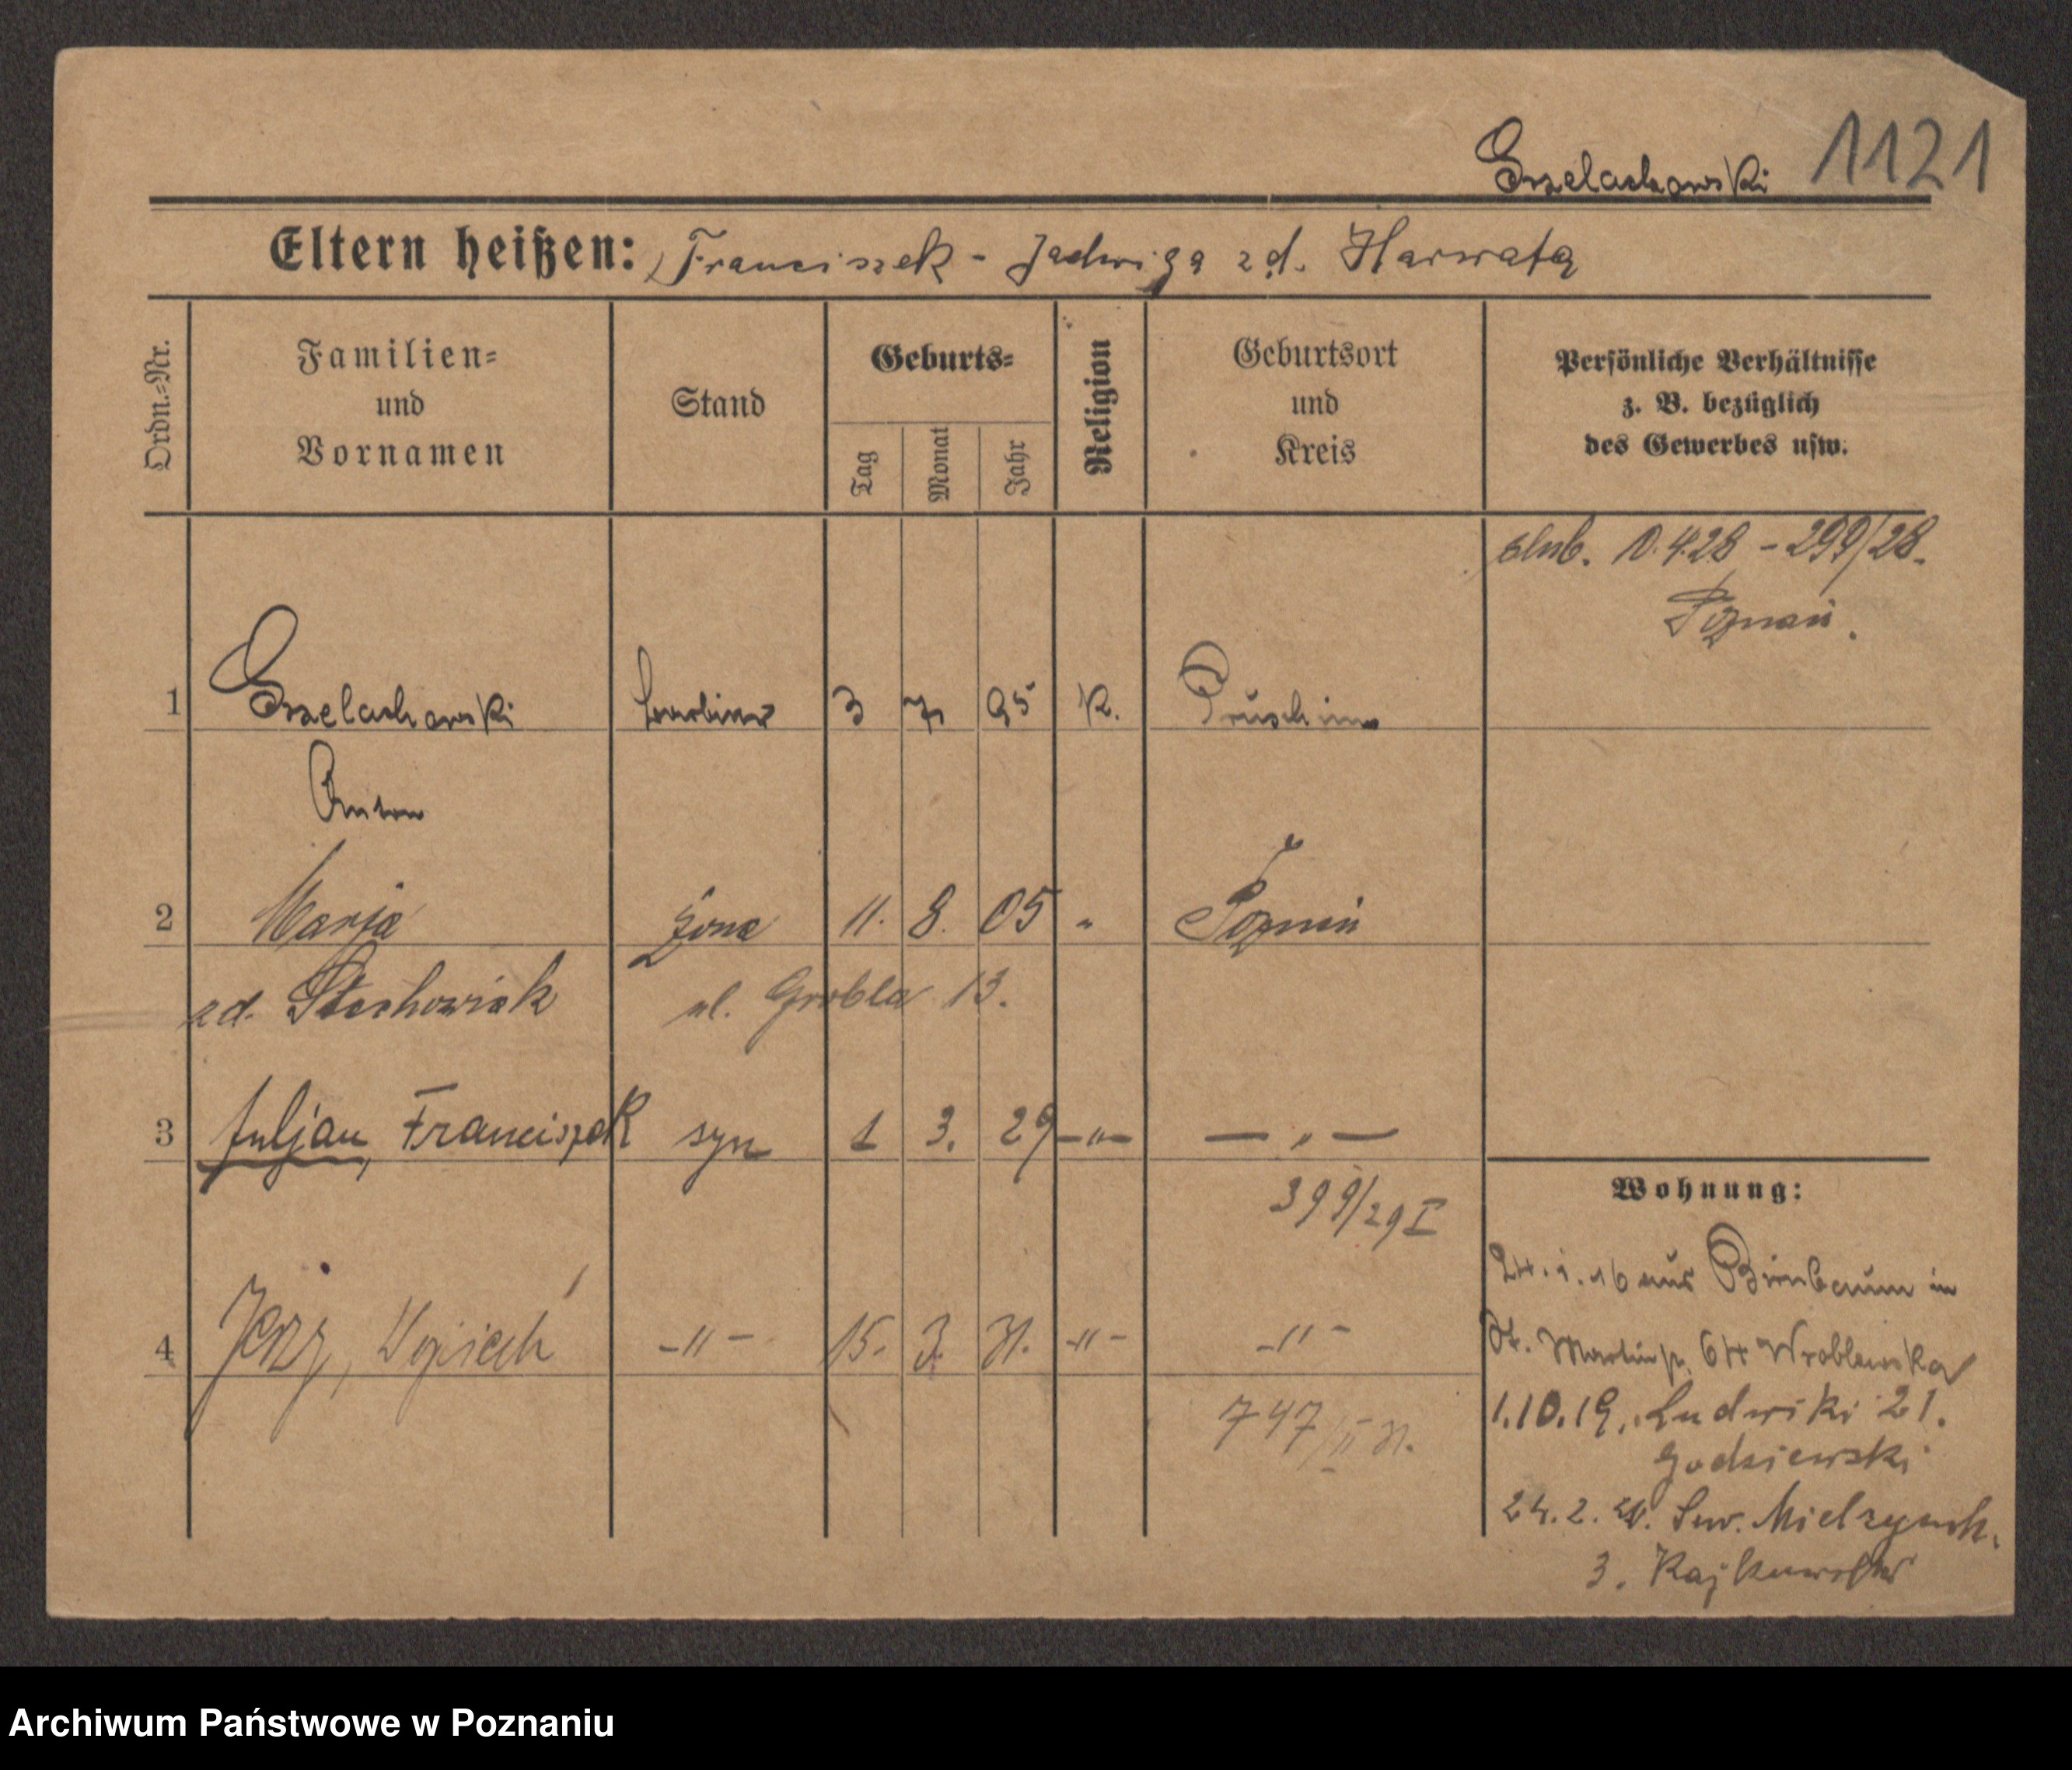 Grzelachowski 1121
Eltern heißen: Franciszek - Jadwiga zd. Harwata
Ordn.=Nr.
Familien=
und
Vornamen
Stand
Geburts=
Tag
Monat
Jahr
Religion
Geburtsort
und
Kreis
Persönliche Verhältnisse
z. B. bezüglich
des Gewerbes usw.
ślub. 10.4.28 - 299/28.
Poznań.
1 3 7 95 K. Pruschim
Anton
2 Marja żona 11. 8. 05 " Poznań
zd. Stachowiak ul. Grobla 13.
3 Juljan, Franciszek syn 1 3. 29 -"- - " -
399/29 I
4 Jerzy, Wojciech -"- 15. 3. 31. -"- -"-
747/II 31.
Wohnung:
24.1.16 aus Birnbaum in
St. Martin 64 Wroblewska
1.10.19. Ludwiki 21.
Godziewski
24.2. Sew. Mielzynsk.
3.
Archiwum Państwowe w Poznaniu